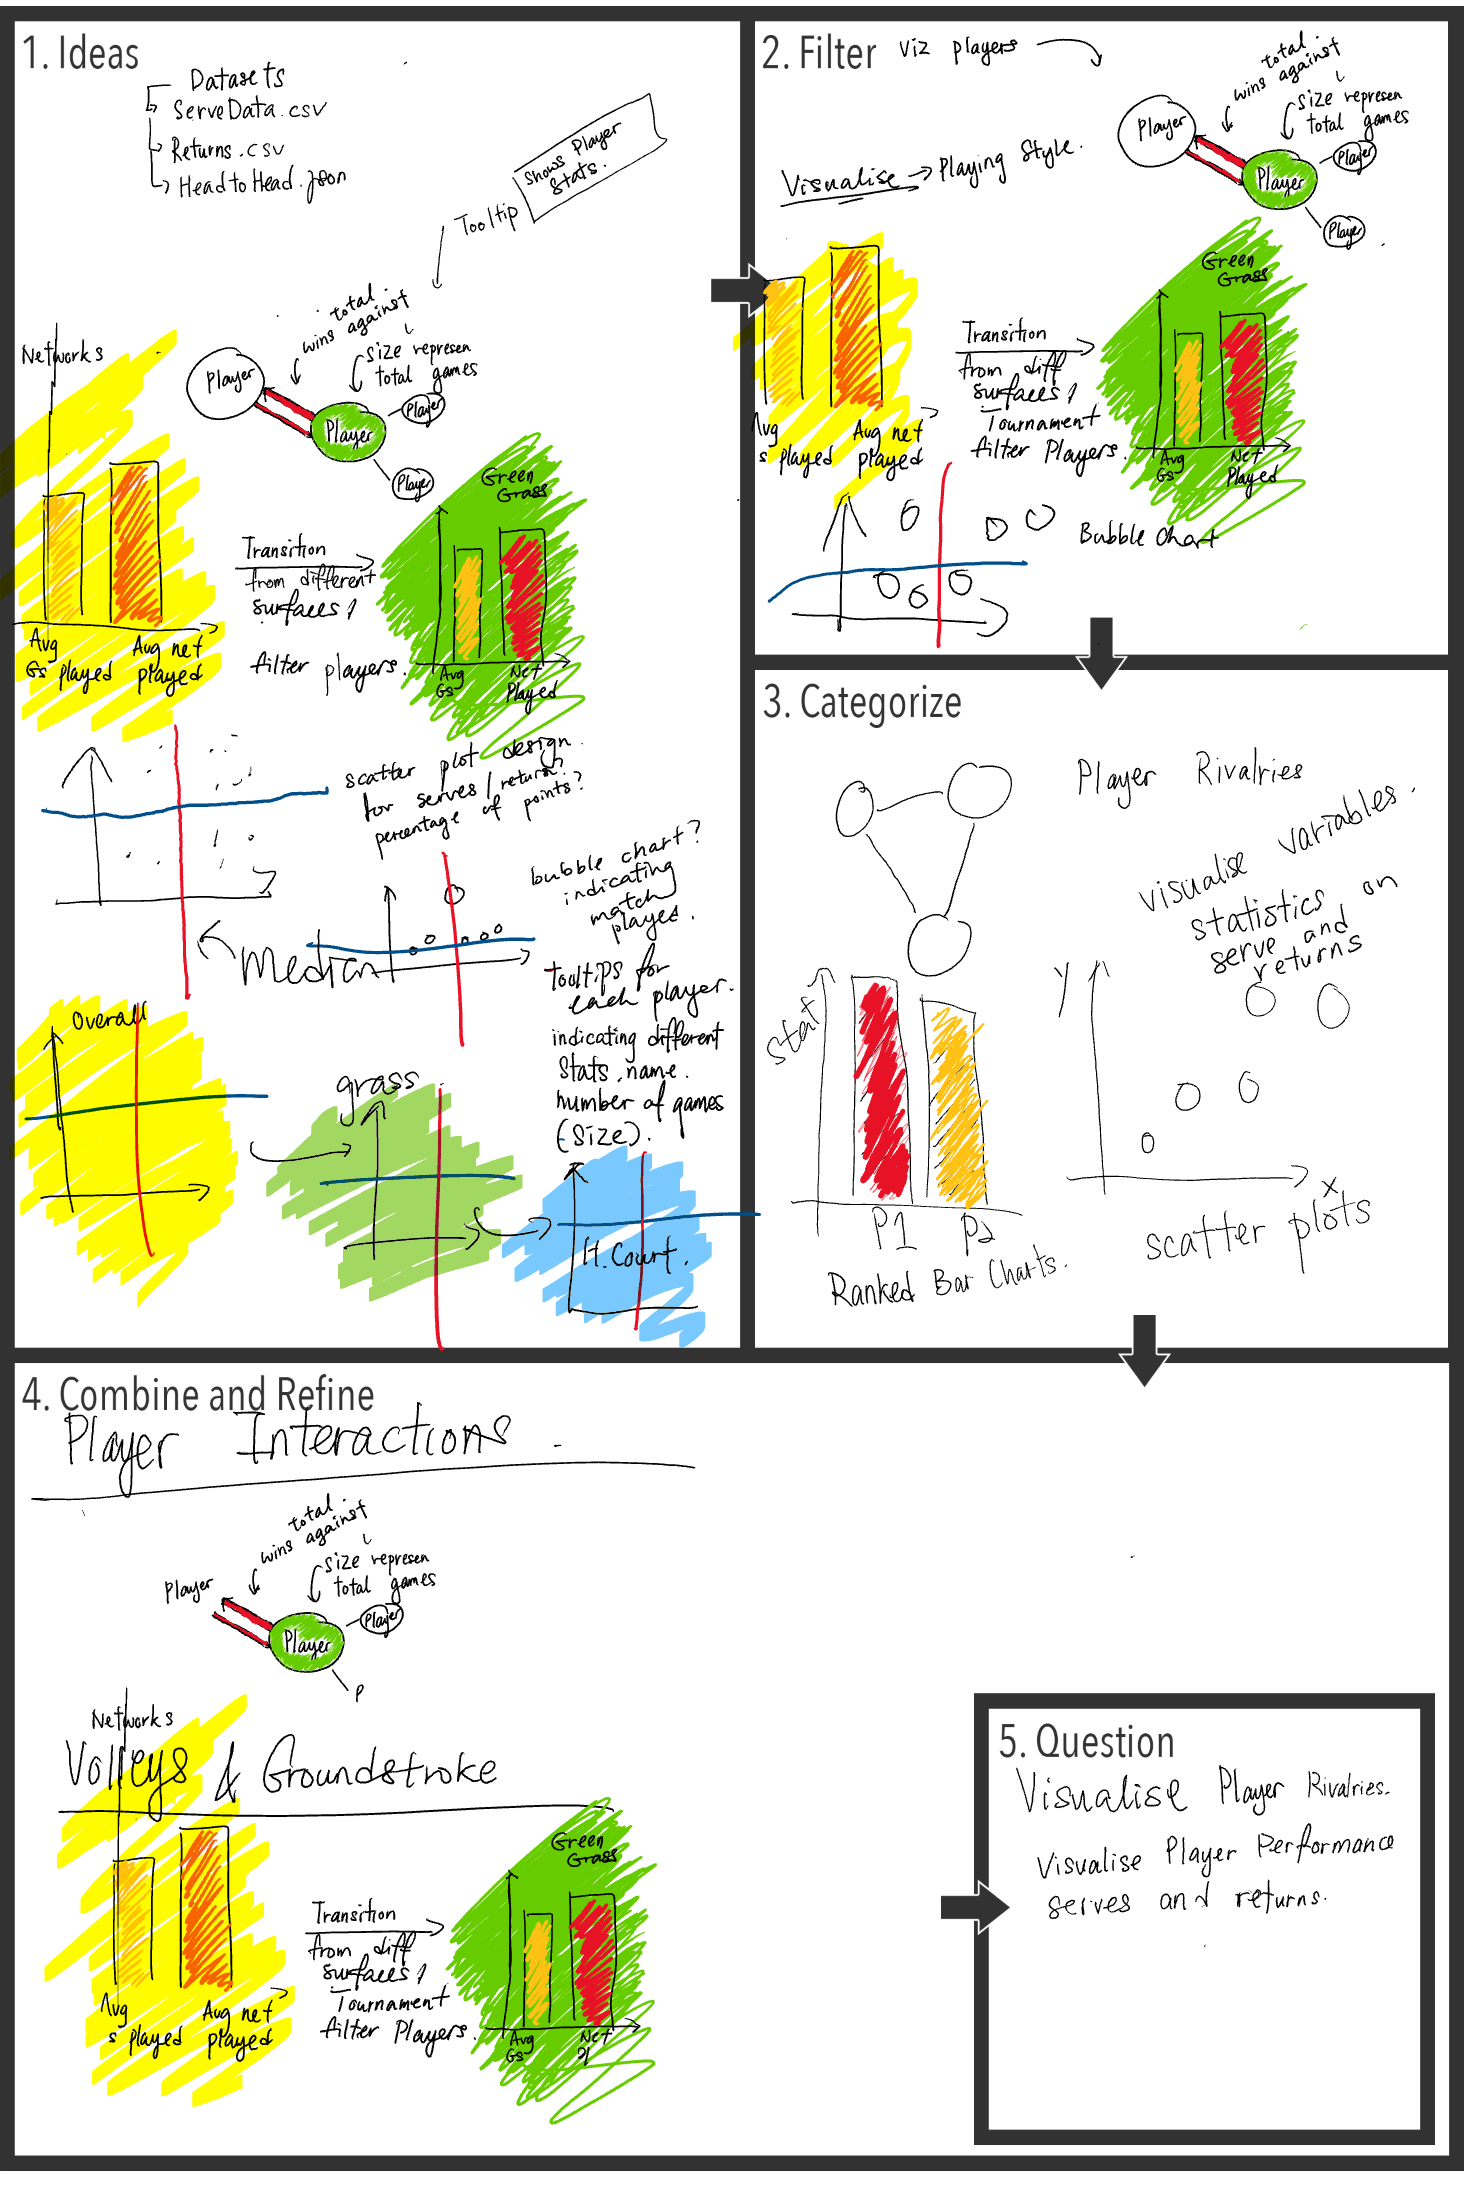 1. Ideas
Datasets
ServeData.csv
Returns.csv
HeadtoHead.json
Shows Player
Stats.
Tooltip
total
wins against
size represen
total games
Networks
Player
Player
Player
Player
Green
Grass
Transition
from different
surfaces /
filter players.
Avg
Gs played
Avg net
played
Avg
Gs
Net
Played
scatter plot design
for serves/return?
percentage of points?
bubble chart?
indicating
match
played.
Median
tooltips for
each player.
indicating different
stats, name.
number of games
(size).
Overall
grass
H. Court.
2. Filter
Viz players
total
wins against
size represen
total games
Player
Player
Player
Player
Visualise → Playing Style.
Green
Grass
Transition
from diff
surfaces /
Tournament
filter Players.
Avg
s played
Avg net
played
Avg
Gs
Net
Played
Bubble Chart
3. Categorize
Player Rivalries
visualise variables.
statistics on
serve and
returns
stat
P1
P2
Ranked Bar Charts.
y
x
scatter plots
4. Combine and Refine
Player Interactions.
total
wins against
size represen
total games
Player
Player
Player
P
Networks
Volleys & Groundstroke
Green
Grass
Transition
from diff
surfaces /
Tournament
filter Players.
Avg
s played
Avg net
played
Avg
Gs
Net
5. Question
Visualise Player Rivalries.
Visualise Player Performance
serves and returns.